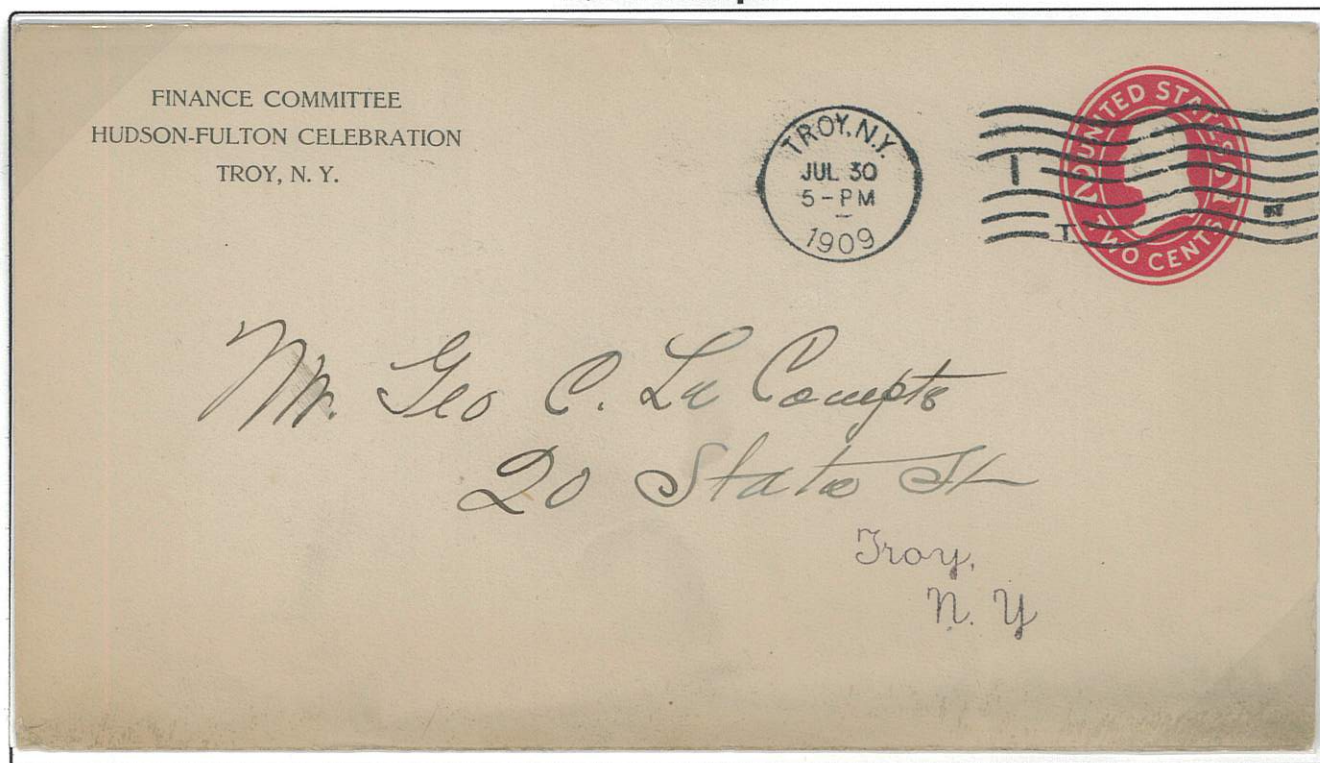 FINANCE COMMITTEE
HUDSON-FULTON CELEBRATION
TROY, N. Y.
TROY, N.Y.
JUL 30
5-PM
1909
UNITED STATES
TWO CENTS
Mr. Geo C. La Compte
20 State St
Troy,
N. Y